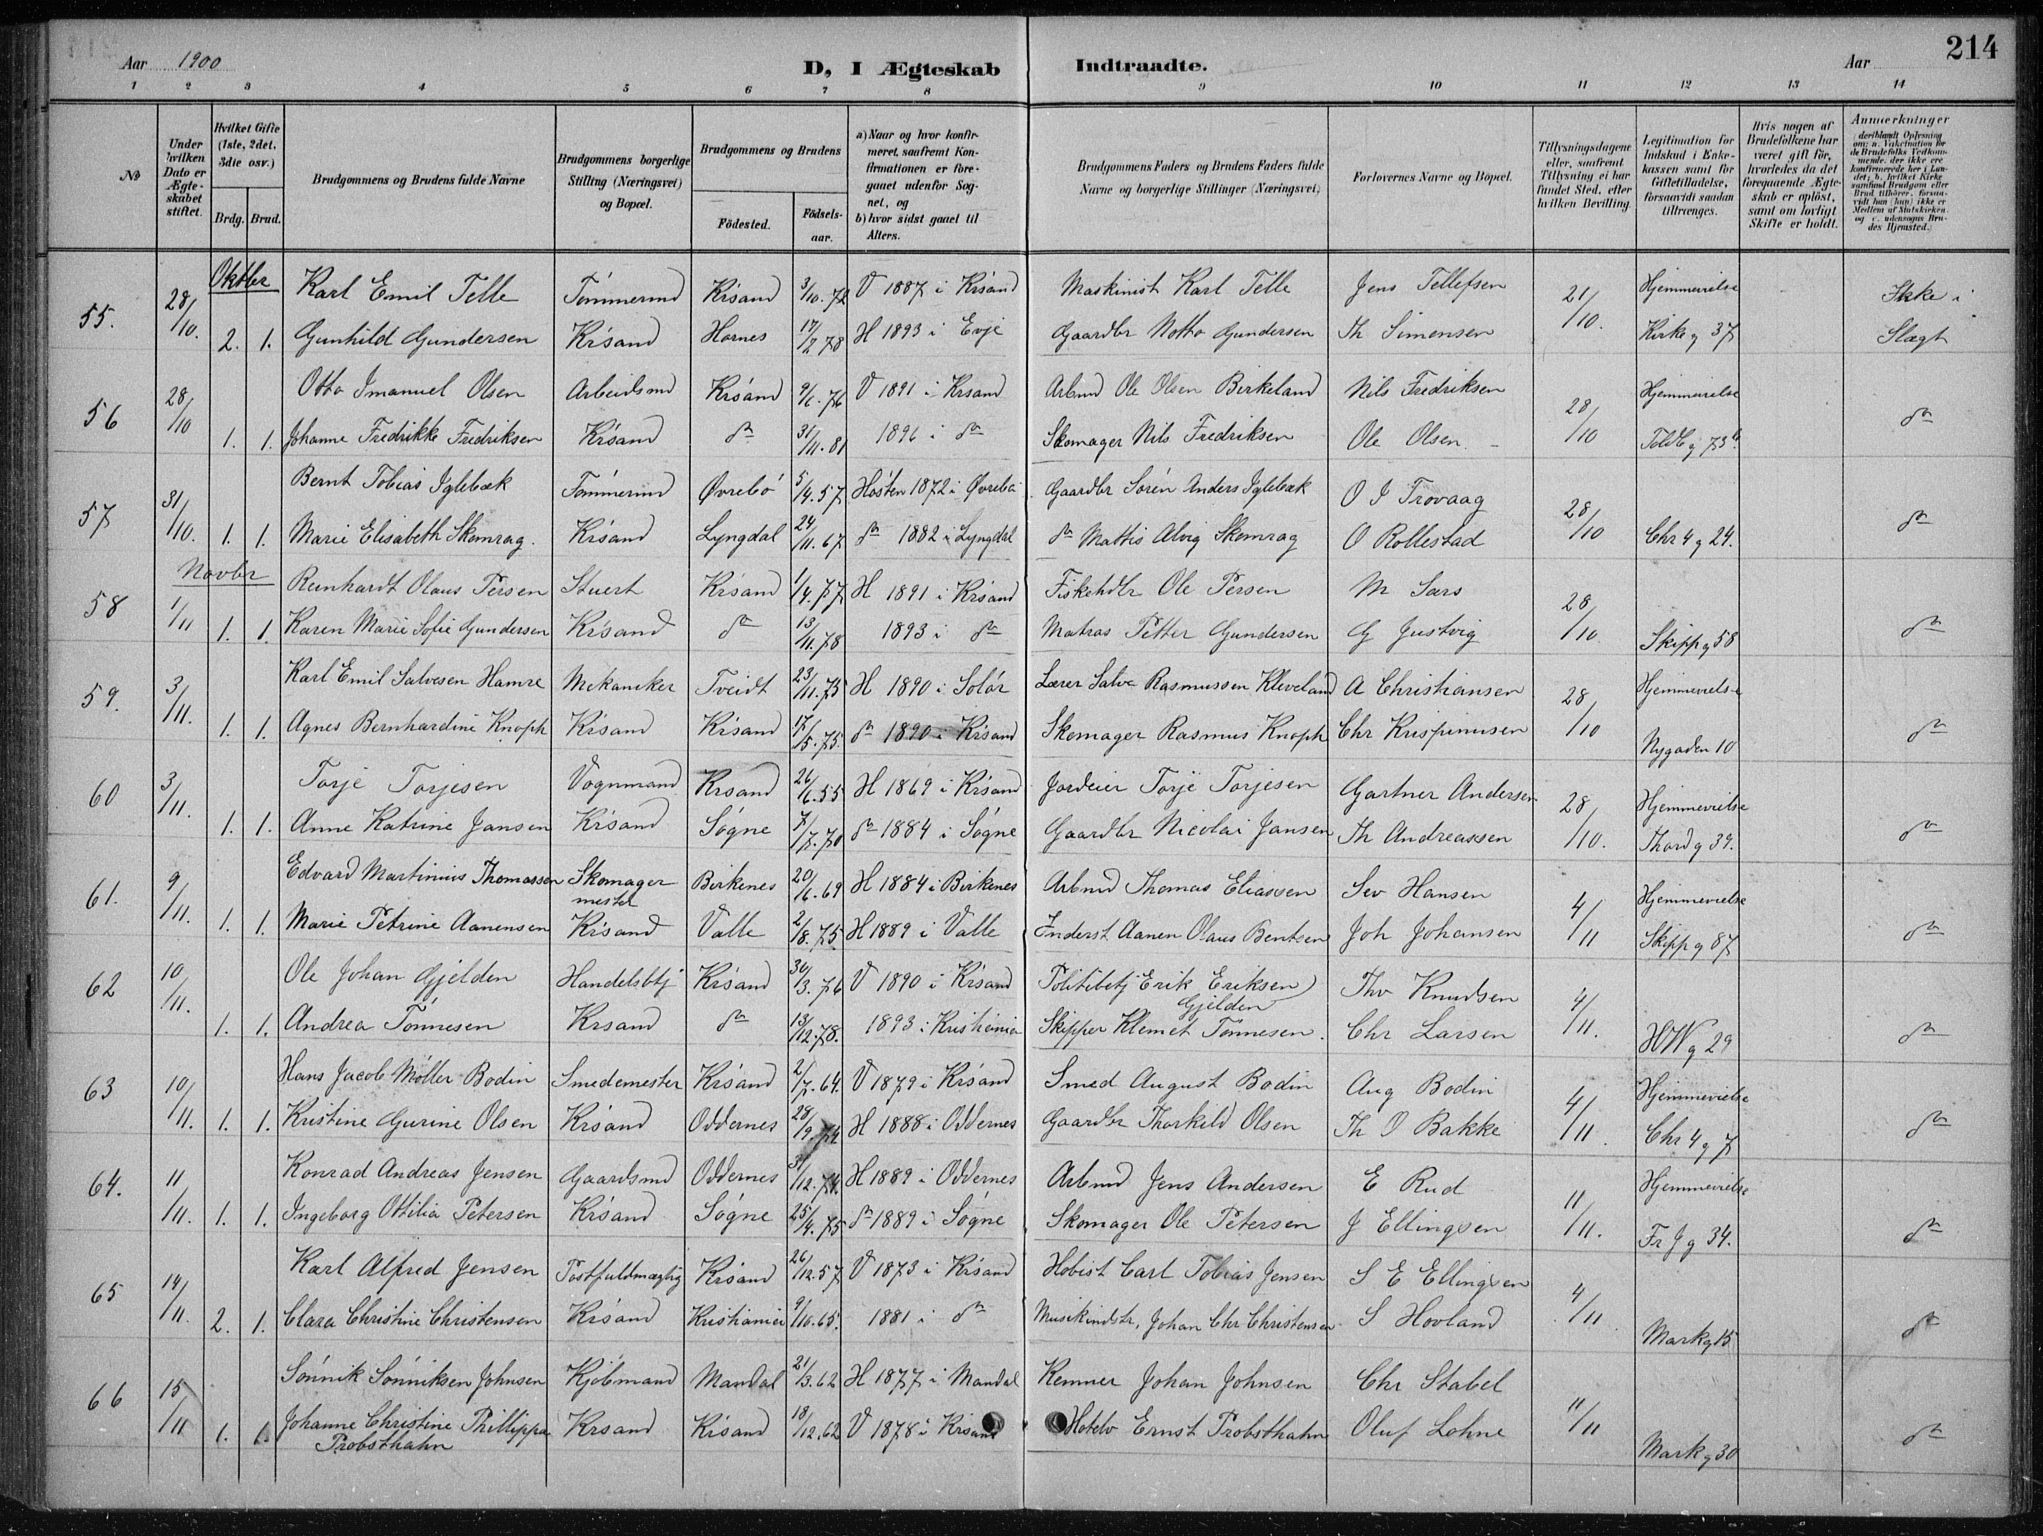 Aar 1900
D, I Ægteskab Indtraadte.
Aar
214
1 2 3 4 5 6 7 8 9 10 11 12 13 14
No
Under hvilken Dato er Ægteskabet stiftet.
Hvilket Gifte (1ste, 2det, 3die osv.)
Brdg. Brud.
Brudgommens og Brudens fulde Navne
Brudgommens borgerlige Stilling (Næringsvei) og Bopæl.
Brudgommens og Brudens
Fødested. Fødselsaar.
a) Naar og hvor konfirmeret, saafremt Konfirmationen er foregaaet udenfor Sognet, og
b) hvor sidst gaaet til Alters.
Brudgommens Faders og Brudens Faders fulde Navne og borgerlige Stillinger (Næringsvei)
Forlovernes Navne og Bopæl.
Tillysningsdagene eller, saafremt Tillysning ei har fundet Sted, efter hvilken Bevilling.
Legitimation for Indskud i Enkekassen samt for Giftetilladelse, forsaavidt saadan tiltrænges.
Hvis nogen af Brudefolkene har været gift før, hvorledes da det foregaaende Ægteskab er opløst, samt om lovligt Skifte er holdt.
Anmærkninger
(deriblandt Oplysning om: a. Vakcination for de Brudefolks Vedkommende, der ikke ere konfirmerede her i Landet; b. hvilket Kirkesamfund Brudgom eller Brud tilhører, forsaavidt han (hun) ikke er Medlem af Statskirken, og c. udensogns Brudes Hjemsted.)
Oktbr
55. 28/10. Karl Emil Telle Tømmermd Krsand 3/10.72 V 1887 i Krsand Maskinist Karl Telle Jens Tellefsen 21/10. Hjemmevielse Ikke i
2. 1. Gunhild Gundersen Krsand Hornes 17/2 78 H 1893 i Evje Gaardbr Notto Gundersen Th Simonsen Kirkeg 37 Slægt
56 28/10 Otto Imanuel Olsen Arbeidsmd Krsand 9/6.76 V 1891 i Krsand Arbmd Ole Olsen Birkeland Nils Fredriksen 28/10 Hjemmevielse do
1. 1. Johanne Fredrikke Fredriksen Krsand do 31/11.81 1896 i do Skomager Nils Fredriksen Ole Olsen Toldbg 73
57 31/10. Bernt Tobias Iglebæk Tømmermd Øvrebø 5/4.57 Høsten 1872 i Øvrebø Gaardbr Søren Anders Iglebæk O I Trovaag 28/10 do
1. 1. Marie Elisabeth Skomrag. Krsand Lyngdal 24/11.67 do 1882 i Lyngdal do Mattis Alvig Skomrag O Rollestad Chr 4 g 24.
Novbr
58 1/11 Reinhardt Olaus Persen Stuert Krsand 1/4.77 H 1891 i Krsand Fiskehdlr Ole Persen M Sars 28/10 do
1. 1. Karen Marie Sofie Gundersen Krsand do 13/11.78 1893 i do Matros Petter Gundersen G Justvig Skippg 58
59. 3/11. Karl Emil Salvesen Hamre Mekaniker Tveidt 23/11.75 H 1890 i Solør Lærer Salve Rasmussen Kleveland A Christiansen 28/10 Hjemmevielse do
1. 1. Agnes Bernhardine Knoph Krsand Krsand 17/5.75. do 1890 i Krsand Skomager Rasmus Knoph Chr Krispinusen Nygaden 10
60 3/11. Torje Torjesen Vognmand Krsand 26/6.55 H 1869 i Krsand Jordeier Torje Torjesen Gartner Andersen 28/10. Hjemmevielse do
1. 1. Anne Katrine Jansen Krsand Søgne 7/7.70 do 1884 i Søgne Gaardbr Nicolai Jansen Th Andreassen Thord g 39.
61. 9/11. Edvard Martinius Thomassen Skomager mester Birkenes 20/6.69 H 1884 i Birkenes Arbmd Thomas Eliassen Sev Hansen 4/11 Hjemmevielse do
1. 1. Marie Petrine Aanensen Krsand Valle 2/8.75. H 1889 i Valle Inderst Aanen Olaus Bentsen Joh Johansen Skippg 87
62 10/11. Ole Johan Gjelden Handelsbtj Krsand 30/3.76 V 1890 i Krsand Politibtj Erik Eriksen Gjelden Thv Knudsen 4/11. do
1. 1. Andrea Tønnesen Krsand do 13/12.78. 1893 i Kristiania Skipper Klemet Tønnesen Chr Larsen HWg 29
63 10/11. Hans Jacob Møller Bodin Smedemester Krsand 2/7.64. V 1879 i Krsand Smed August Bodin Aug Bodin 4/11. Hjemmevielse do
1. 1. Kristine Gurine Olsen Krsand Oddernes 28/9.74 H 1888 i Oddernes Gaardbr Thorkild Olsen Th O Bakke Chr 4 g 7
64. 11/11. Konrad Andreas Jensen Gaardsmd Oddernes 31/12.74. H 1889 i Oddernes Arbmd Jens Andersen E Rud 11/11. Hjemmevielse do
1. 1. Ingeborg Ottilia Petersen Krsand Søgne 25/4.75 do 1889 i Søgne Skomager Ole Petersen J Ellingsen Fr J g 34.
65 14/11. Karl Alfred Jensen Postfuldmægtig Krsand 26/12.57 V 1873 i Krsand Hobist Carl Tobias Jensen S E Ellingsen 4/11 do
2. 1. Clara Christine Christensen Krsand Kristiania 9/10.65. 1881 i do Musikindstr, Johan Chr Christensen S Hovland Markg 15
66 15/11 Sønnik Sønniksen Johnsen Kjøbmand Mandal 21/3.62 H 1877 i Mandal Kemner Johan Johnsen Chr Stabel 11/11 do
1. 1. Johanne Christine Phillippa Probsthahn Krsand Krsand 18/12.62 V 1878 i Krsand Hotelv Ernst Probsthahn Oluf Lohne Markg 30